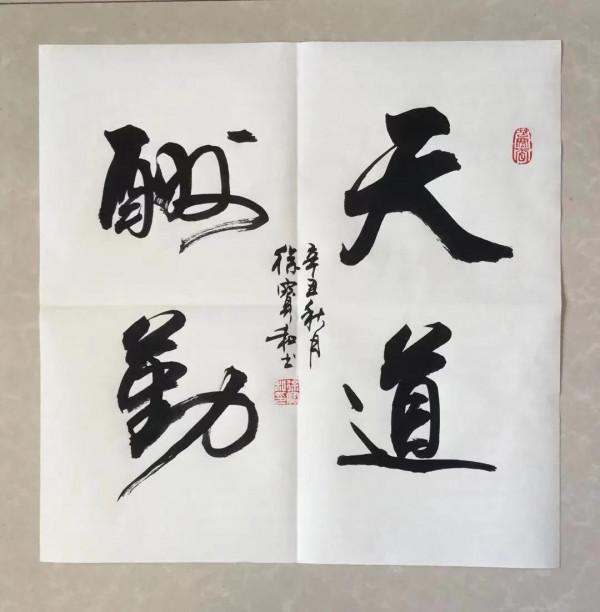 天道
酬勤
辛丑秋月
徐寶和书